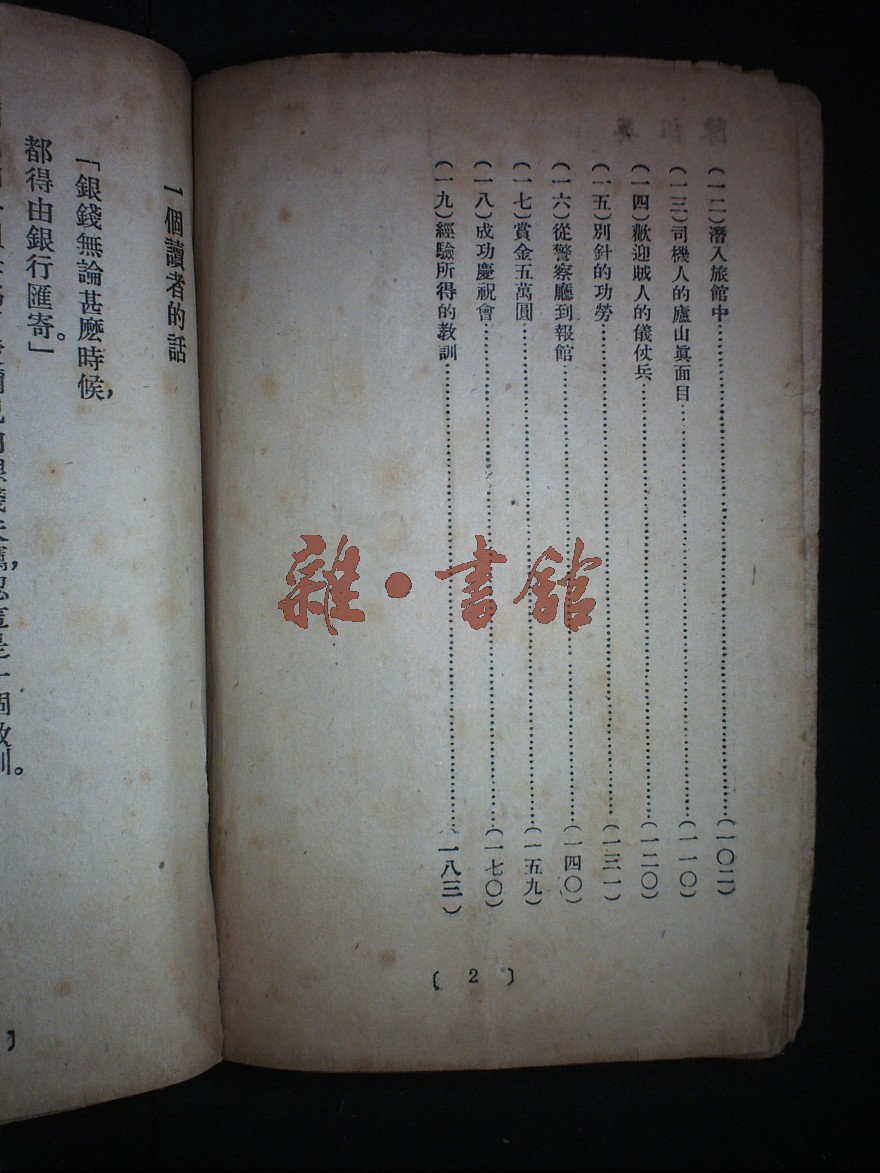 （一二）潛入旅館中……（一〇二）
（一三）司機人的廬山眞面目……（一一〇）
（一四）歡迎賊人的儀仗兵……（一二〇）
（一五）別針的功勞……（一三一）
（一六）從警察廳到報館……（一四〇）
（一七）賞金五萬圓……（一五九）
（一八）成功慶祝會……（一七〇）
（一九）經驗所得的教訓……（一八三）
〔2〕
一個讀者的話
「銀錢無論甚麽時候，
都得由銀行匯寄」。
雜·書館